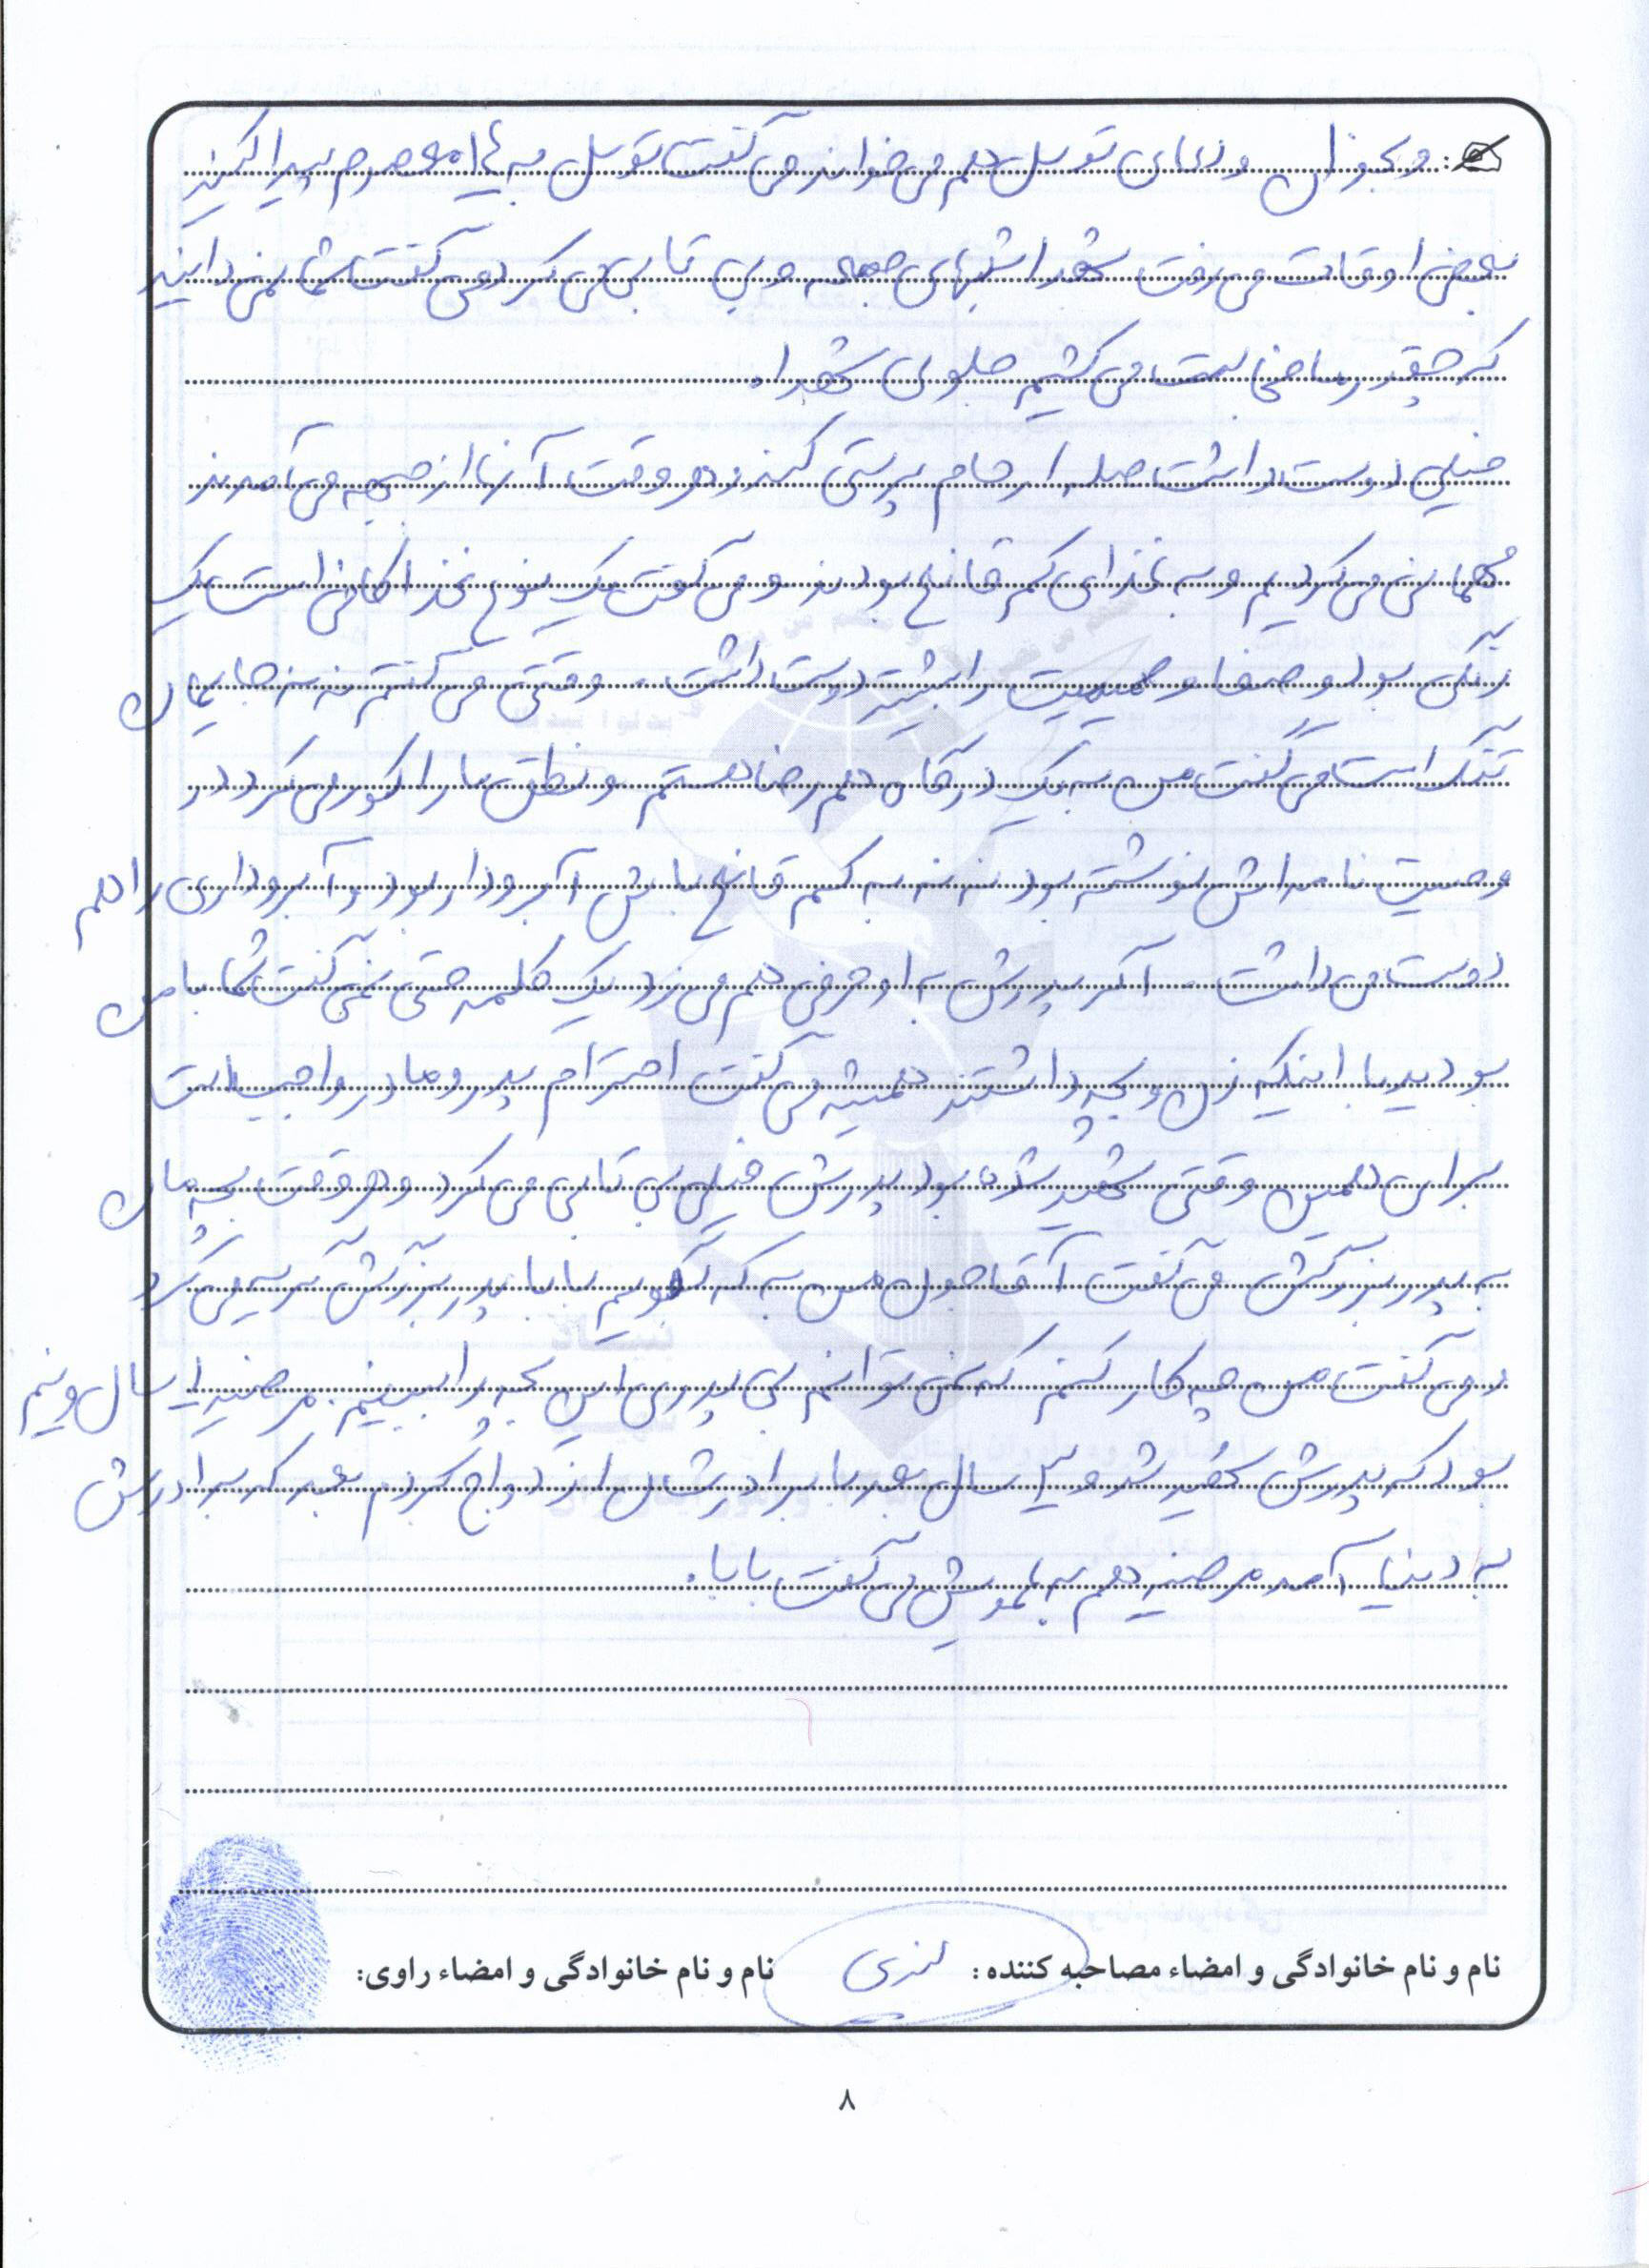 و بخوان و دعای توسل هم می خواند می گفت توسل به ۱۴ معصوم پیدا کنید
بعضی اوقات می رفت شهدا شبهای جمعه و بی تابی می کرد می گفت شما نمی دانید
که چقدر ما خجالت می کشیم جلوی شهدا.
خیلی دوست داشت صله ارحام پرستی کند و هر وقت آنها از جبهه می آمدند
مهمانی می کردیم و به غذای کم قانع بودند و می گفت یک نوع غذا کافی است یک
رنگی بود و صفا و صمیمیت را بیشتر دوست داشت. وقتی می گفتم ننه جایمان
تنگ است می گفت من به یک درگاه هم رضا هستم و نطق ما را کور می کرد در
وصیت نامه اش نوشته بود ننه به کم قانع باش آبرودار بود و آبروداری را هم
دوست می داشت. اگر پدرش به او حرفی هم می زد یک کلمه حتی نمی گفت شما با من
بودید با اینکه زن و بچه داشتند همیشه می گفت احترام پدر و مادر واجب است
برای همین وقتی شهید شده بود پدرش خیلی بی تابی می کرد و هر وقت بچه مان
به پدربزرگش می گفت آقاجون من به که بگویم بابا پدربزرگش گریه می کرد
و می گفت من چه کار کنم که نمی توانم بی پدری این بچه را ببینم. مرضیه ۱ سال و نیم
بود که پدرش شهید شد و ۲ سال بعد با برادرشان ازدواج کردم بعد که برادرش
به دنیا آمد مرضیه هم به عمویش می گفت بابا.
نام و نام خانوادگی و امضاء مصاحبه کننده : نام و نام خانوادگی و امضاء راوی:
۸